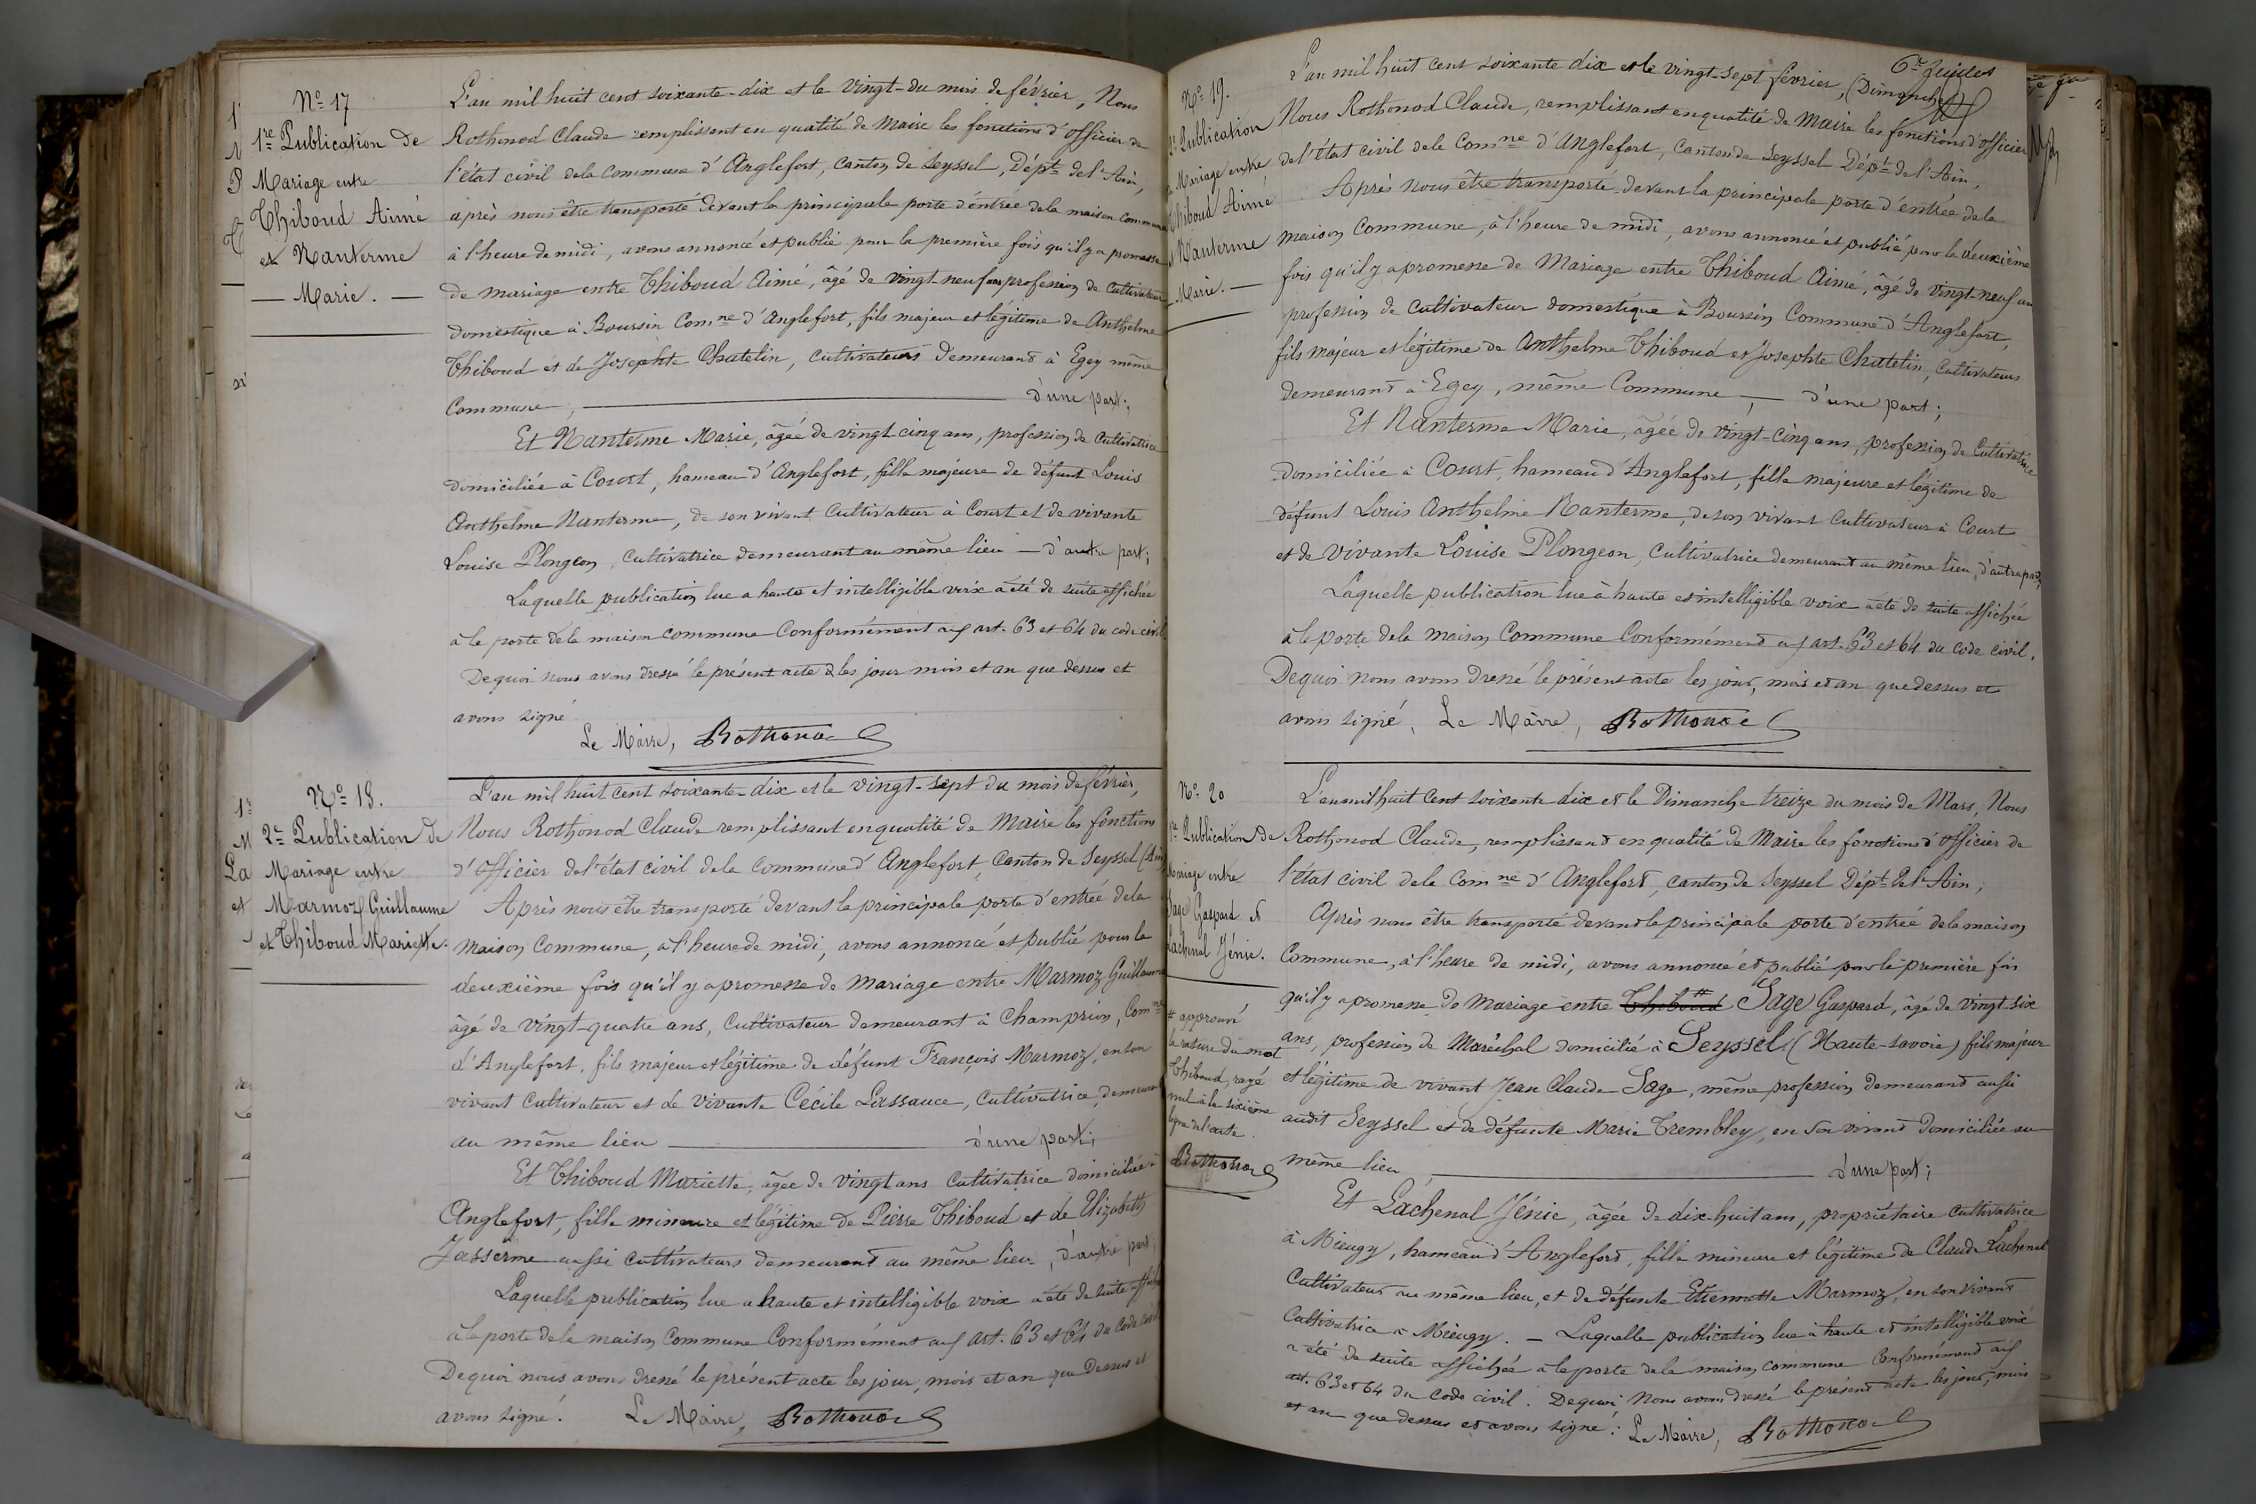 Nº 17
1re Publication de
Mariage entre
Thiboud Aimé
et Nanterme
— Marie. —
L'an mil huit cent soixante-dix et le vingt-du mois de février, Nous
Rothonod Claude remplissant en qualité de Maire les fonctions d'officier de
l'état civil de la commune d'Anglefort, canton de Seyssel, Dépt de l'Ain,
après nous être transporté devant la principale porte d'entrée de la maison commune
à l'heure de midi, avons annoncé et publié pour la première fois qu'il y a promesse
de mariage entre Thiboud Aimé, âgé de vingt-neuf ans profession de cultivateur
domestique à Boursin Comne d'Anglefort, fils majeur et légitime de Anthelme
Thiboud et de Josephte Chatelin, cultivateurs demeurant à Egey même
commune, — d'une part;
Et Nanterme Marie, âgée de vingt cinq ans, profession de Cultivatrice
domiciliée à Court, hameau d'Anglefort, fille majeure de défunt Louis
Anthelme Nanterme, de son vivant Cultivateur à Court et de vivante
Louise Plongeon, Cultivatrice demeurant au même lieu — d'autre part;
Laquelle publication lue a haute et intelligible voix a été de suite affichée
à la porte de la maison commune Conformément aux art. 63 et 64 du code civil
De quoi nous avons dressé le présent acte les jour mois et an que dessus et
avons signé
Le Maire, Rothonod
Nº 18.
2e Publication de
Mariage entre
Marmoz Guillaume
et Thiboud Mariette.
L'an mil huit cent soixante-dix et le vingt-sept du mois de février,
Nous Rothonod Claude remplissant en qualité de Maire les fonctions
d'officier de l'état civil de la commune d'Anglefort, Canton de Seyssel (Ain)
Après nous être transporté devant la principale porte d'entrée de la
maison commune, à l'heure de midi, avons annoncé et publié pour la
deuxième fois qu'il y a promesse de mariage entre Marmoz Guillaume
âgé de vingt-quatre ans, Cultivateur demeurant à Champrion, Comne
d'Anglefort, fils majeur et légitime de défunt François Marmoz, en son
vivant Cultivateur et de vivante Cécile Lassauce, Cultivatrice, demeurant
au même lieu — d'une part;
Et Thiboud Mariette, âgée de vingt ans Cultivatrice domiciliée à
Anglefort, fille mineure et légitime de Pierre Thiboud et de Elizabeth
Jasserme aussi Cultivateurs demeurant au même lieu, d'autre part,
Laquelle publication lue a haute et intelligible voix a été de suite affichée
à la porte de la maison Commune Conformément aux art. 63 et 64 du Code civil
De quoi nous avons dressé le présent acte les jour, mois et an que Dessus et
avons signé. Le Maire, Rothonod
6e
Nº 19.
2e Publication
de Mariage entre
Thiboud Aimé
et Nanterme
Marie. —
L'an mil huit cent soixante dix et le vingt-sept février, (Dimanche)
Nous Rothonod Claude, remplissant en qualité de Maire les fonctions d'officier
de l'état civil de la Comne d'Anglefort, Canton de Seyssel Dépt de l'Ain,
Après nous être transporté devant la principale porte d'entrée de la
maison commune, à l'heure de midi, avons annoncé et publié pour la deuxième
fois qu'il y a promesse de Mariage entre Thiboud Aimé, âgé de vingt-neuf ans
profession de cultivateur domestique à Boursin Commune d'Anglefort,
fils majeur et légitime de Anthelme Thiboud et Josephte Chatelin, Cultivateurs
demeurant à Egey, même Commune, — d'une part;
Et Nanterme Marie, âgée de vingt-cinq ans, profession de Cultivatrice
domiciliée à Court, hameau d'Anglefort, fille majeure et légitime de
défunt Louis Anthelme Nanterme, de son vivant Cultivateur à Court
et de vivante Louise Plongeon, Cultivatrice demeurant au même lieu, d'autre part;
Laquelle publication lue à haute et intelligible voix a été de suite affichée
à la porte de la maison Commune Conformément aux art. 63 et 64 du Code civil.
De quoi nous avons dressé le présent acte les jour, mois et an que dessus et
avons signé, Le Maire, Rothonod
Nº 20
1re Publication de
Mariage entre
Sage Gaspard et
Lachenal Jénie.
# approuvé
la rature du mot
Thiboud, rayé
nul à la sixième
ligne de l'acte.
Rothonod
L'an mil huit cent soixante dix et le Dimanche treize du mois de Mars, Nous
Rothonod Claude, remplissant en qualité de Maire les fonctions d'officier de
l'état civil de la Comne d'Anglefort, canton de Seyssel Dépt de l'Ain,
Après nous être transporté devant la principale porte d'entrée de la maison
Commune, à l'heure de midi, avons annoncé et publié pour la première fois
qu'il y a promesse de Mariage entre Thiboud # Sage Gaspard, âgé de vingt-six
ans, profession de Maréchal domicilié à Seyssel (Haute-Savoie) fils majeur
et légitime de vivant Jean Claude Sage, même profession demeurant aussi
audit Seyssel et de défunte Marie Trembley, en son vivant domiciliée au
même lieu — d'une part;
Et Lachenal Jénie, âgée de dix-huit ans, propriétaire cultivatrice
à Mieugy, hameau d'Anglefort, fille mineure et légitime de Claude Lachenal
Cultivateur au même lieu, et de défunte Etiennette Marmoz, en son vivant
Cultivatrice à Mieugy. — Laquelle publication lue à haute et intelligible voix
a été de suite affichée à la porte de la maison commune Conformément aux
art. 63 et 64 du Code civil. De quoi Nous avons dressé le présent acte les jour, mois
et an que dessus et avons signé: Le Maire, Rothonod